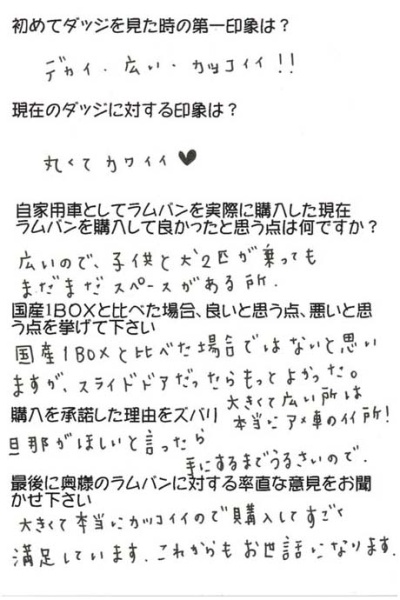 初めてダッジを見た時の第一印象は？
デカイ・広い・カッコイイ!!
現在のダッジに対する印象は？
丸くてカワイイ♥
自家用車としてラムバンを実際に購入した現在
ラムバンを購入して良かったと思う点は何ですか？
広いので、子供と犬2匹が乗っても
まだまだスペースがある所.
国産1BOXと比べた場合、良いと思う点、悪いと思
う点を挙げて下さい
国産1BOXと比べた場合ではないと思い
ますが、スライドドアだったらもっとよかった。
大きくて広い所は
本当にアメ車のイイ所!
購入を承諾した理由をズバリ
旦那がほしいと言ったら
手にするまでうるさいので.
最後に奥様のラムバンに対する率直な意見をお聞
かせ下さい
大きくて本当にカッコイイので購入してすごく
満足しています.これからもお世話になります.